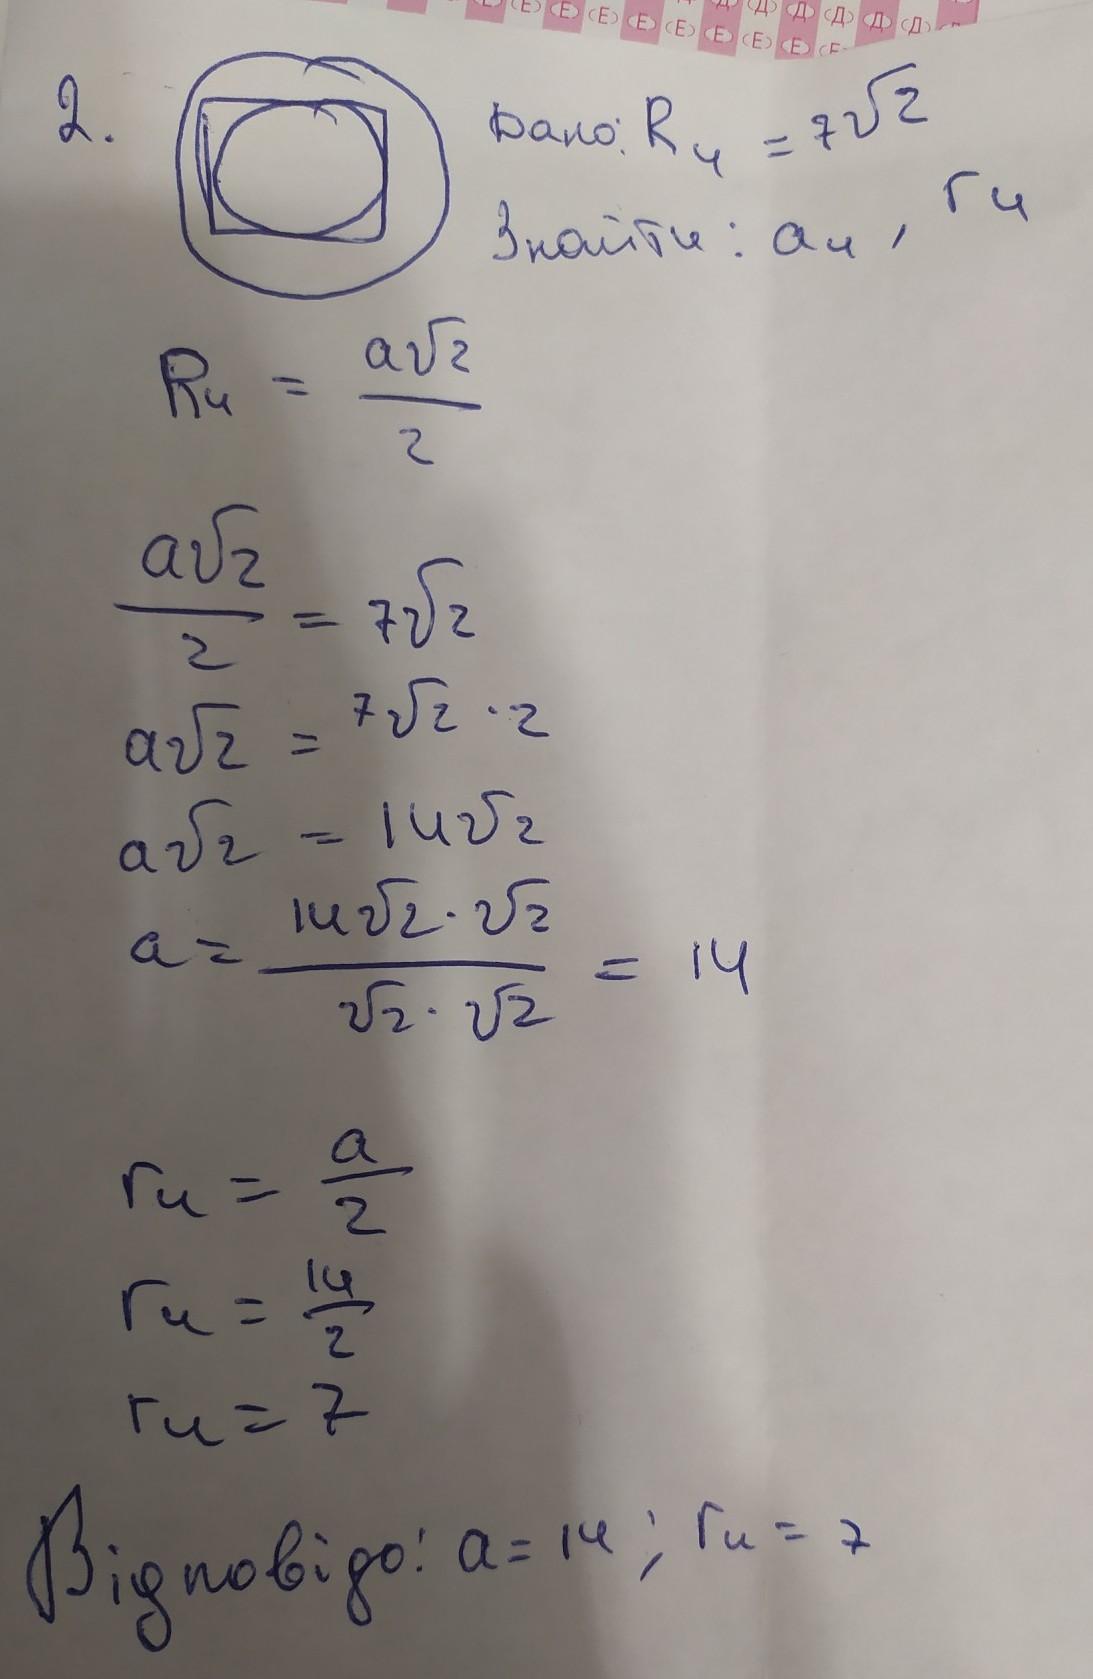 Д (Д) Д (Д) Д (Д)
Е (Е) Е (Е) Е (Е) Е (Е) Е
2.
Дано: R₄ = 7√2
Знайти: a₄, r₄
R₄ = a√2 / 2
a√2 / 2 = 7√2
a√2 = 7√2 · 2
a√2 = 14√2
a = 14√2 · √2 / √2 · √2 = 14
r₄ = a / 2
r₄ = 14 / 2
r₄ = 7
Відповідь: a = 14; r₄ = 7